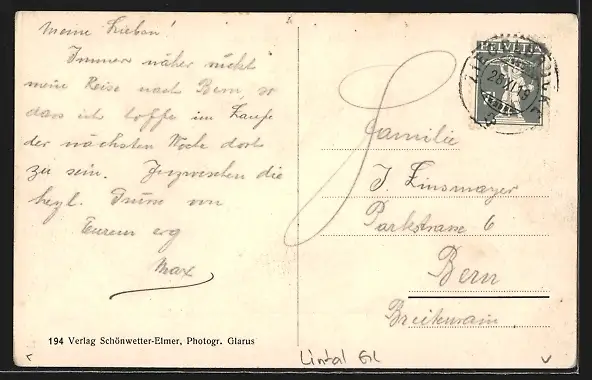 Meine Lieben!
Immer näher rückt
meine Reise nach Bern, so
dass ich hoffe im Laufe
der nächsten Woche dort
zu sein. Inzwischen die
herzl. Grüsse von
Eurem
Max
194 Verlag Schönwetter-Elmer, Photogr. Glarus
HELVETIA
Familie
J. Zinsmayer
Parkstrasse 6
Bern
Breitenrain
Lintal Gl